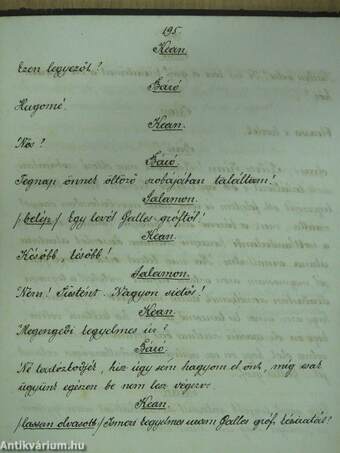 195.
Kean.
Ezen legyezőt?
Báró
Hugomé.
Kean.
Nos?
Báró.
Tegnap önnek öltöző szobájában találtam!
Salamon.
/:belép:/ Egy levél Galles gróftól!
Kean.
Később, később!
Salamon.
Nem! Tüstént. Nagyon sietős!
Kean.
Megengedi kegyelmes úr?
Báró.
Ne tartózkodjék, hisz úgy sem hagyom el önt, míg ezat
ügyünk egészen be nem lesz végezve.
Kean.
/:lassan olvasott:/ Ismeri kegyelmes uram Galles gróf kézíratát?
Antikvárium.hu